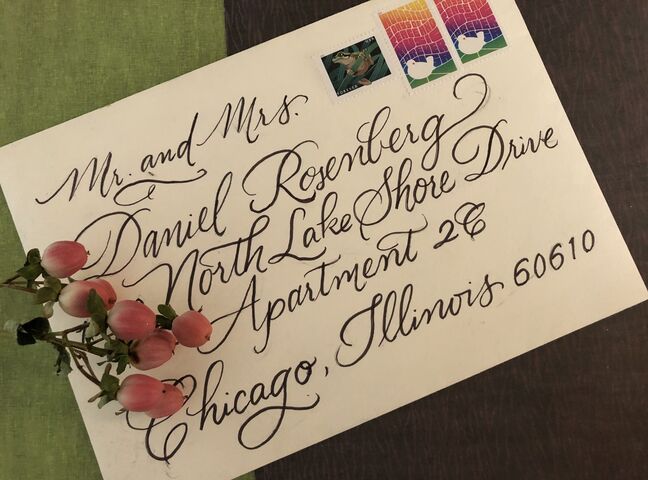 Mr. and Mrs.
Daniel Rosenberg
North Lake Shore Drive
Apartment 2C
Chicago, Illinois 60610
FOREVER